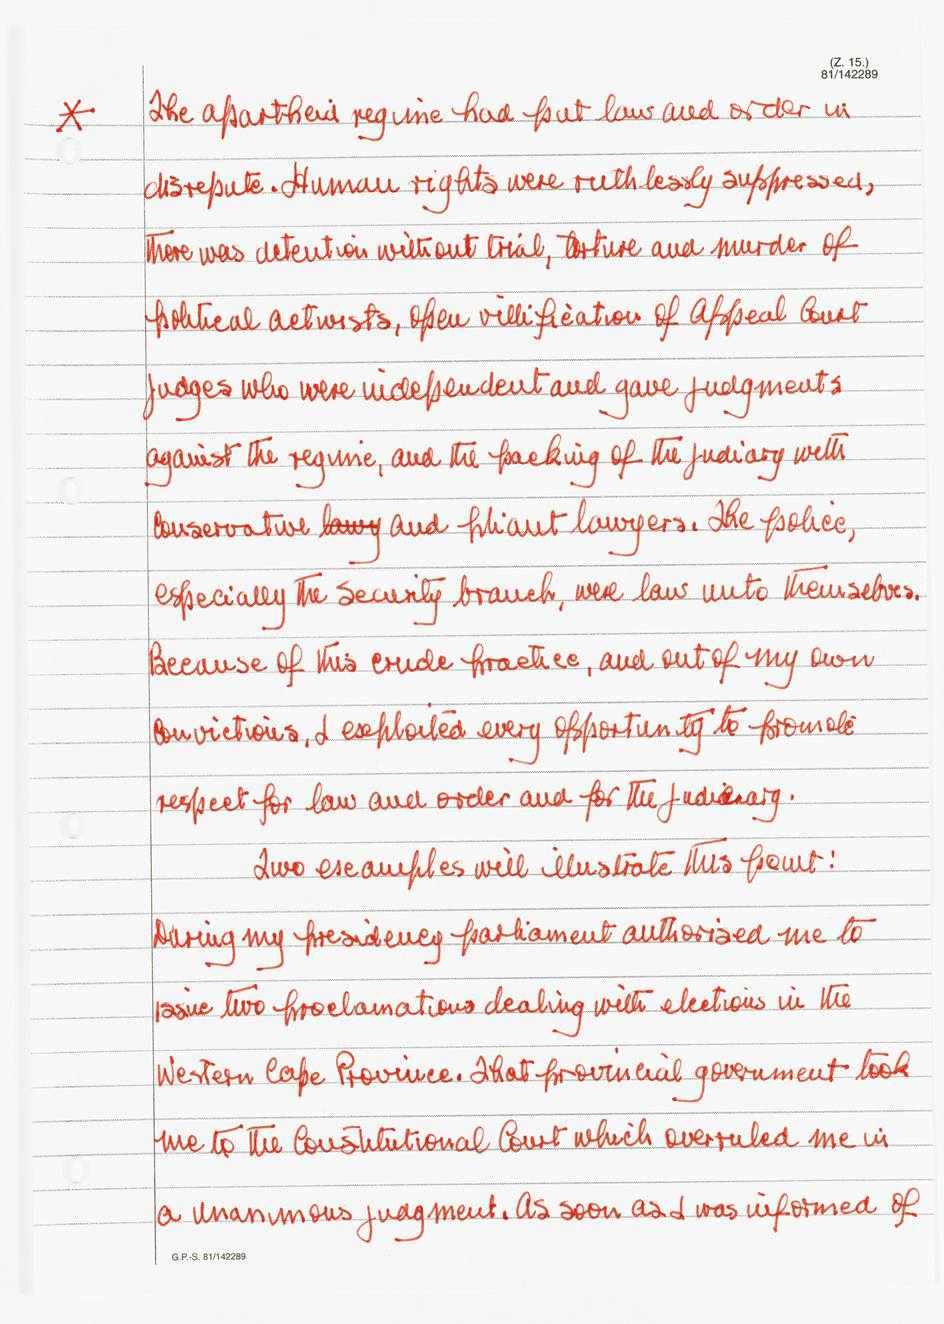 (Z. 15.)
81/142289
* The apartheid regime had put law and order in
disrepute. Human rights were ruthlessly suppressed,
there was detention without trial, torture and murder of
political activists, open villification of Appeal Court
judges who were independent and gave judgments
against the regime, and the packing of the judiary with
conservative lawy and pliant lawyers. The police,
especially the security branch, were law unto themselves.
Because of this crude practice, and out of my own
convictions, I exploited every opportunity to promote
respect for law and order and for the judiciary.
Two examples will illustrate this point:
During my presidency parliament authorised me to
issue two proclamations dealing with elections in the
Western Cape Province. That provincial government took
me to the Constitutional Court which overruled me in
a unanimous judgment. As soon as I was informed of
G.P.-S. 81/142289